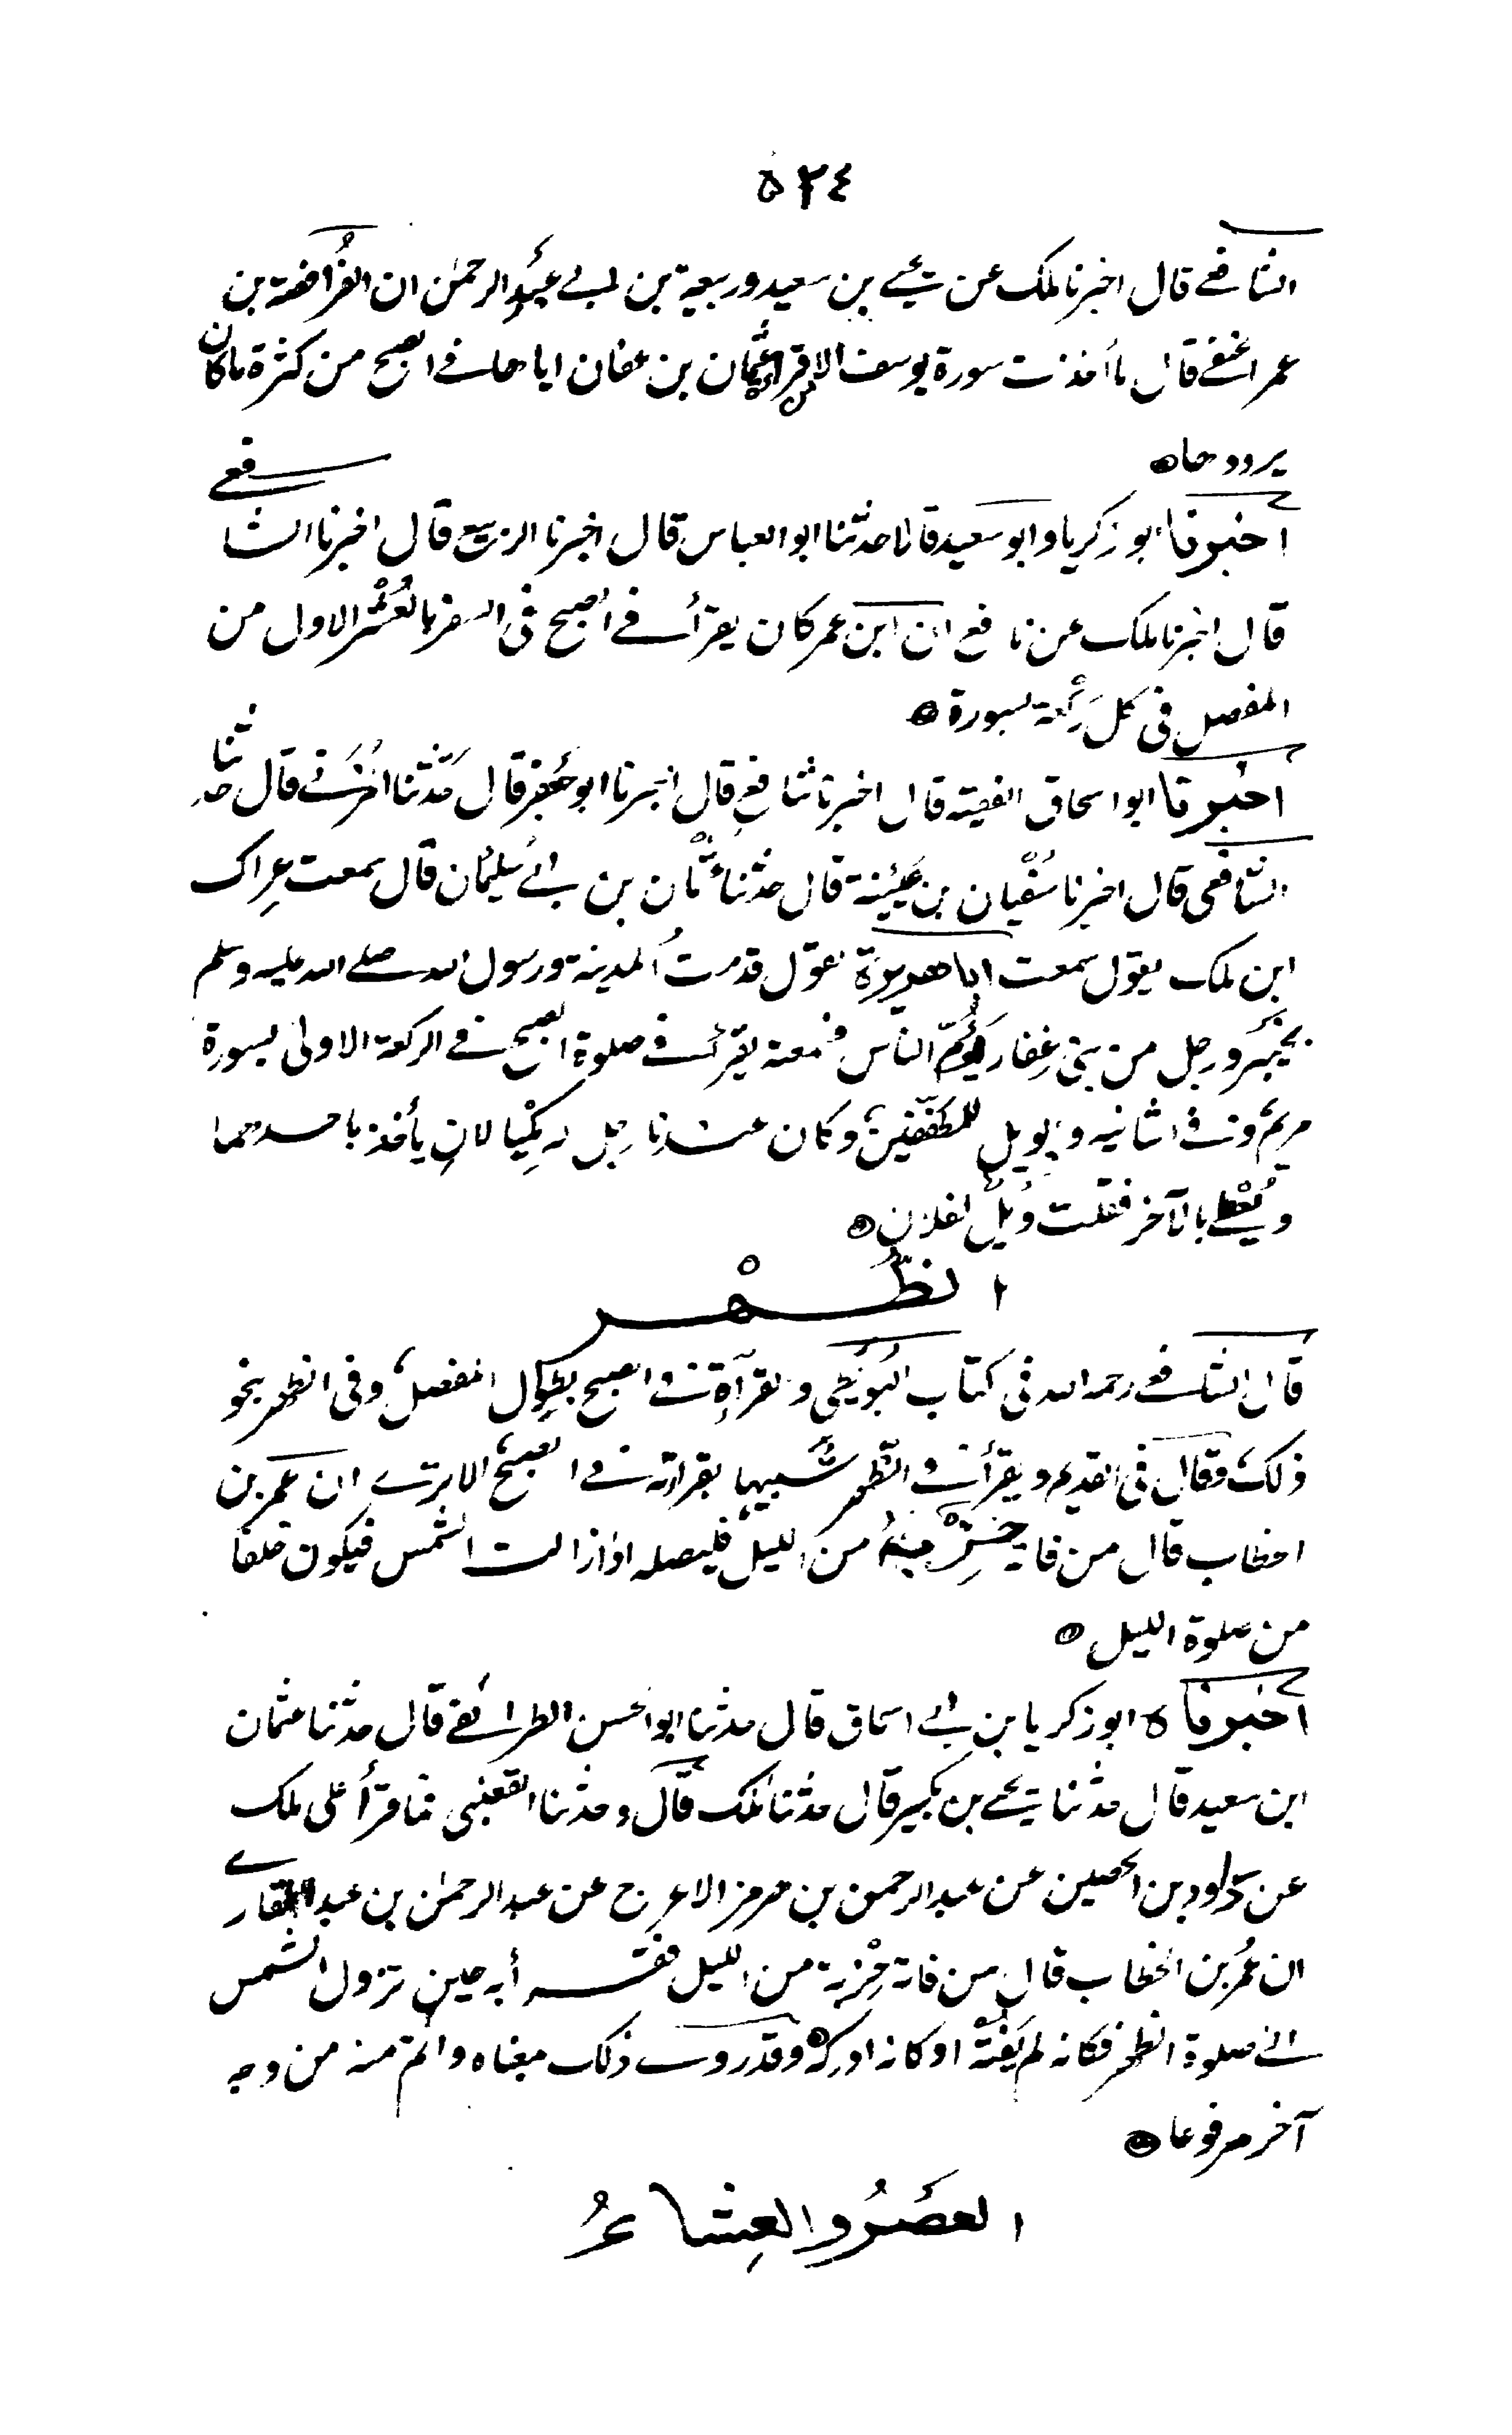 ٥٢٤
الشافعے قال اخبرنا ملك عن يحيے بن سعيد وربيعة بن ابے عبد الرحمٰن ان الفُرافصة بن
عمر الحنفے قال ما أخذت سورة يوسف الا من قراءة عثمان بن عفان اياها فے الصبح من كثرة ما كان
يرددها ه
أخبرنا ابو زكريا وابو سعيد قالا حدثنا ابو العباس قال اخبرنا الربيع قال اخبرنا الشافعے
قال اخبرنا ملك عن نافع ان ابن عمر كان يقرأ فے الصبح فى السفر بالعُشْر الاول من
المفصل فى كل ركعة بسورة ه
أخبرنا ابو اسحاق الفقيه قال اخبرنا شافع قال اخبرنا ابو جعفر قال حدثنا المُزَنے قال حدثنا
الشافعى قال اخبرنا سُفْيان بن عيينة قال حدثنا عثمان بن ابے سُليمان قال سمعت عِراك
ابن ملك يقول سمعت اباهريرة يقول قدمتُ المدينة ورسول الله صلے الله عليه وسلم
بخيبر ورجل من بنى غِفار يَؤُمّ الناس فسمعته يقرأ فے صلوة الصبح فے الركعة الاولى بسورة
مريم وفے الثانيه ويل للمطففين وكان عندنا رجل له مِكْيالان يأخذ باحدهما
ويُعْطے بالآخر فقلت ويلٌ لفلان ه
الظُّهْر
قال الشافعے رحمه الله فى كتاب البُوَيْطى والقراءة فے الصبح بطِوال المفصل وفى الظهر نحو
ذلك وقال فى القديم ويقرأ فے الظُّهر شَبيها بقراءته فے الصبح الا ترے ان عمر بن
الخطاب قال من فاته حِزْبه من الليل فليصله اذا زالت الشمس فيكون خلفا
من صلوة الليل ه
أخبرناه ابو زكريا بن ابے اسحاق قال حدثنا ابو الحسن الطرائفے قال حدثنا عثمان
ابن سعيد قال حدثنا يحيے بن بكير قال حدثنا ملك قال وحدثنا القعنبى فيما قرأ على ملك
عن داود بن الحصين عن عبد الرحمن بن هرمز الاعرج عن عبد الرحمٰن بن عبد القارے
ان عُمر بن الخطاب قال من فاته حِزْبه من الليل فقرأ به حين تزول الشمس
الى صلوة الظهر فكانه لم يَفُتْه او كانه ادركه ه وقد روے ذلك معناه واتم منه من وجه
آخر مرفوعا ه
العصَرُ والعِشاءُ